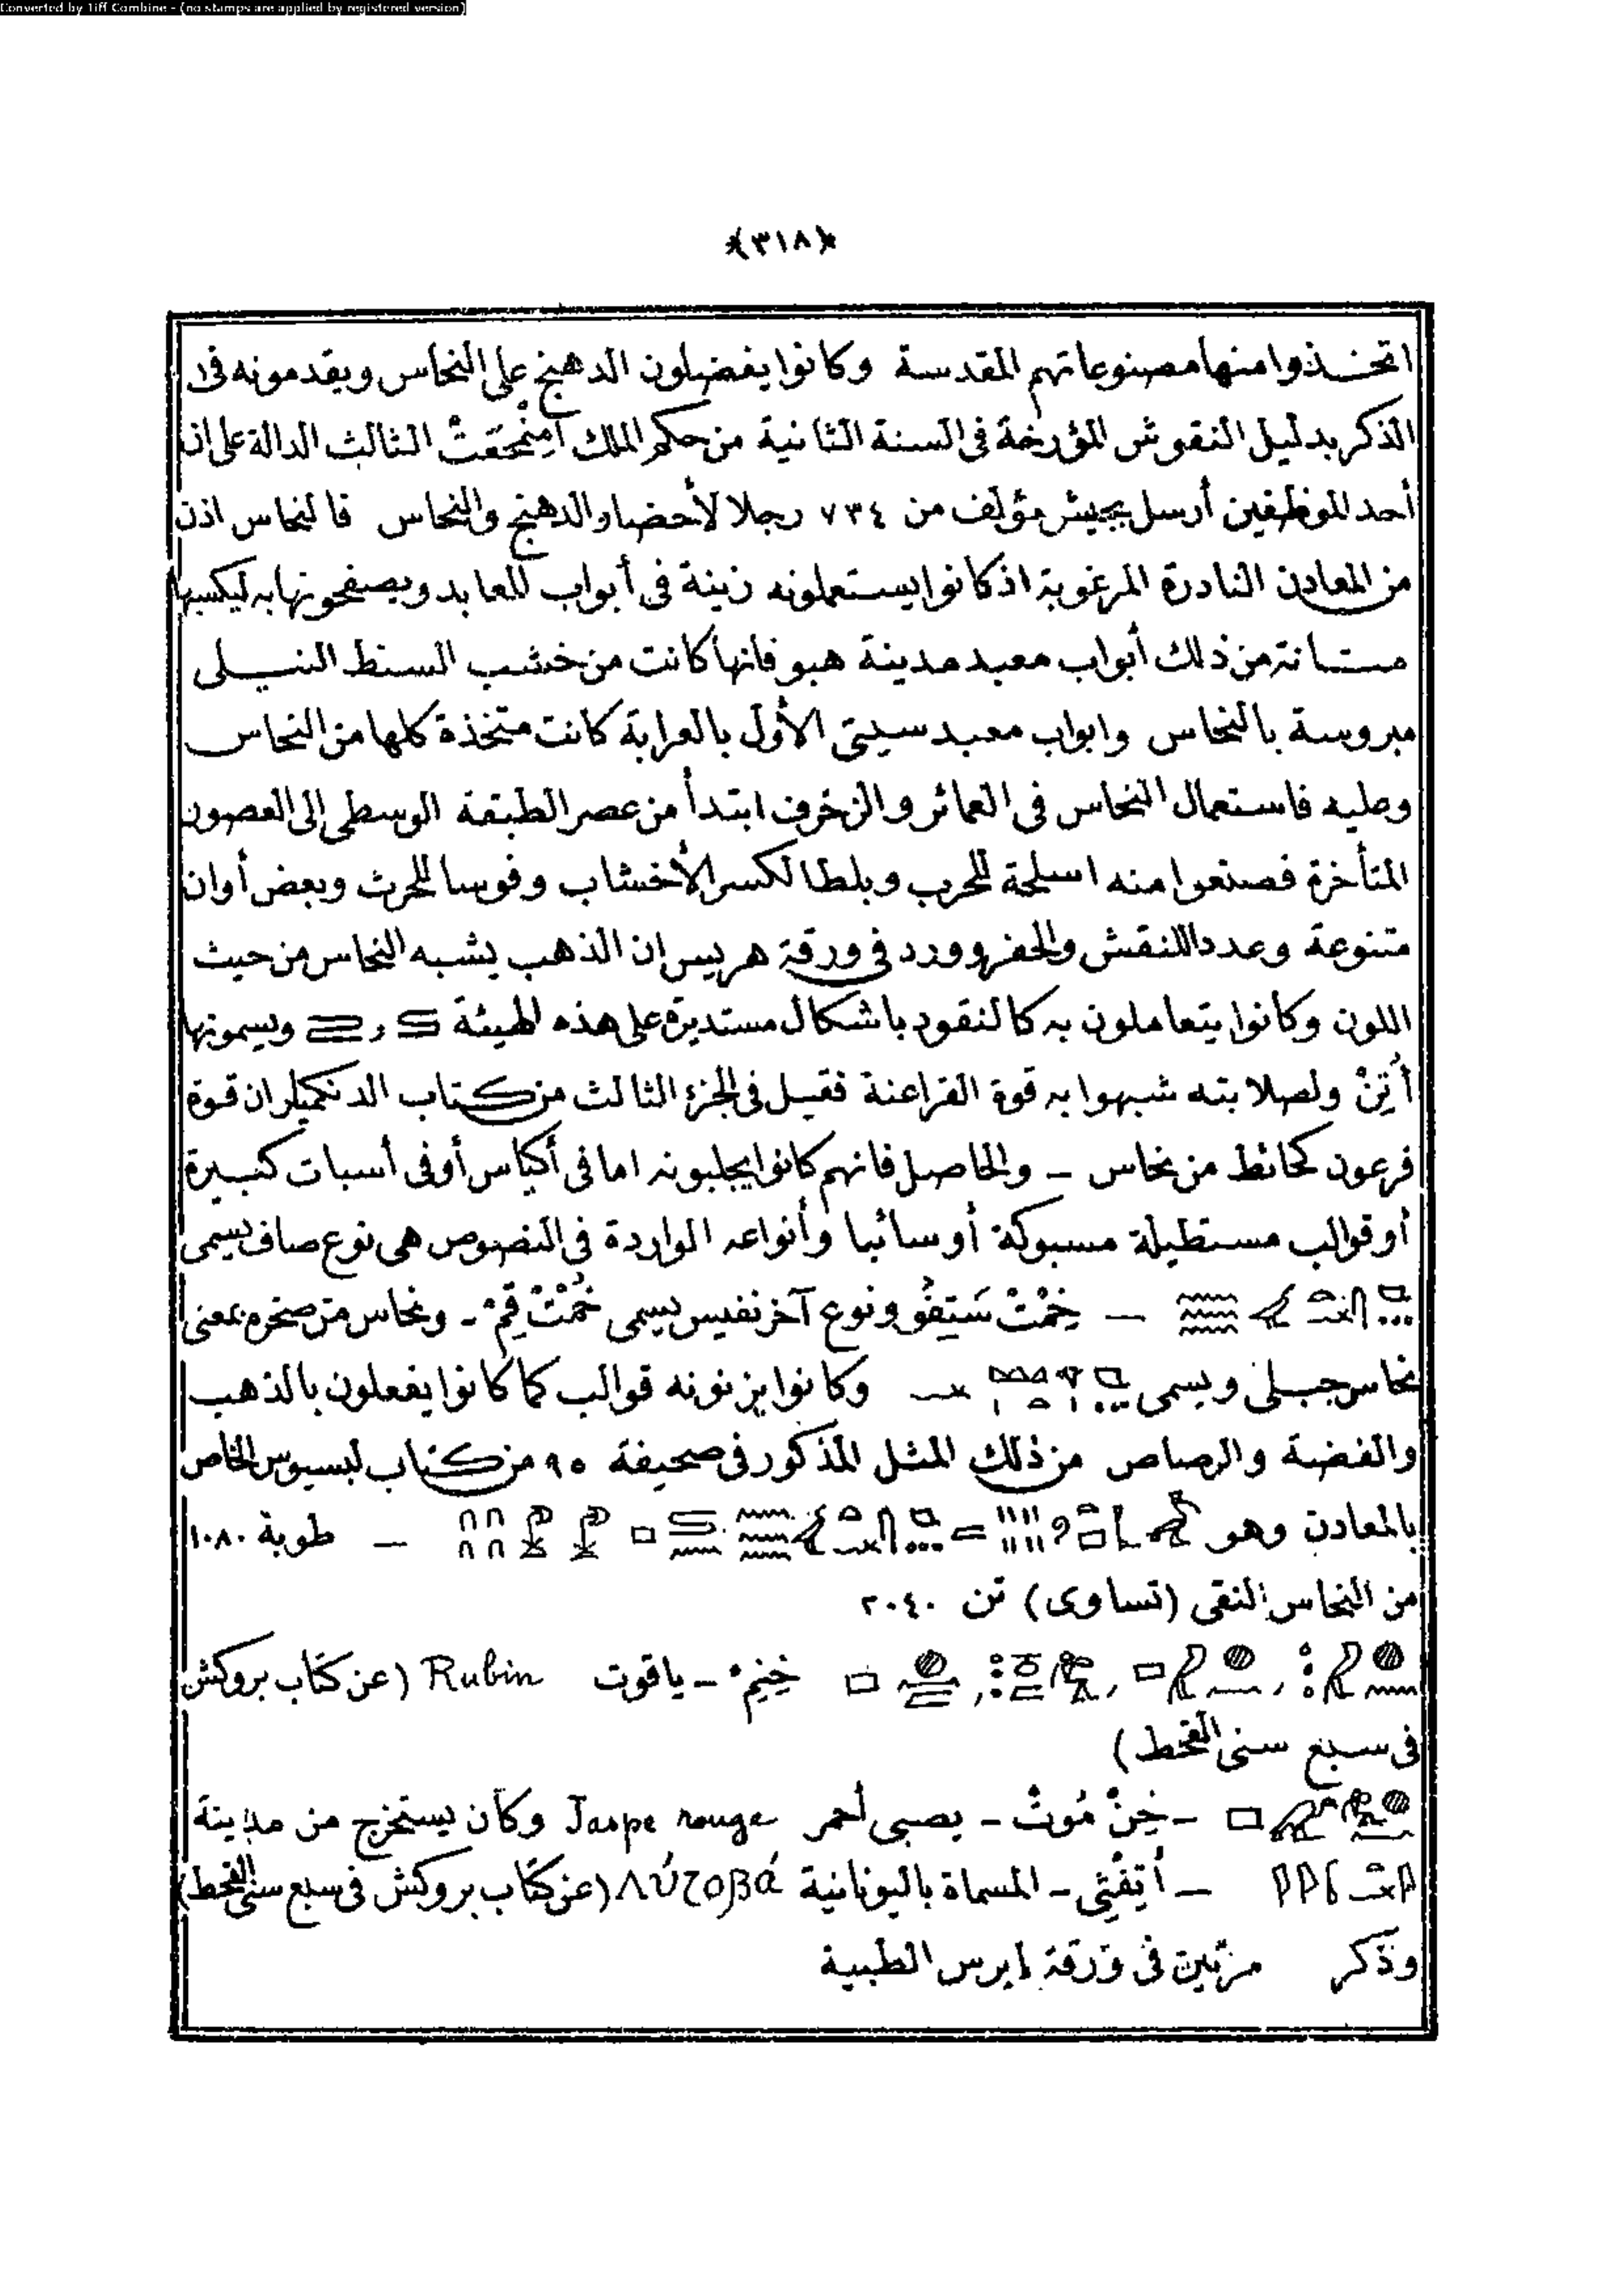 Converted by Tiff Combine - (no stamps are applied by registered version)
﴿٣١٨﴾
اتخـذوا منها مصنوعاتهم المقدسة وكانوا يفضلون الدهنج على النحاس ويقدمونه فى
الذكر بدليل النقوش المؤرخة فى السنة الثانية من حكم الملك أمِنْمحَعَتْ الثالث الدالة على ان
أحد الموظفين أرسل بجيش مؤلف من ٧٣٤ رجلا لأحضار الدهنج والنحاس فالنحاس اذن
من المعادن النادرة المرغوبة اذ كانوا يستعملونه زينة فى أبواب المعابد ويصفحونها به ليكسبها
متـانة من ذلك أبواب معبد مدينة هبو فانها كانت من خشب السنط النيـلى
مبروسة بالنحاس وابواب معبد سيتى الأول بالعرابة كانت متخذة كلها من النحاس
وعليه فاستعمال النحاس فى العمائر والزخرف ابتدأ من عصر الطبقة الوسطى إلى العصور
المتأخرة فصنعوا منه اسلحة للحرب وبلطا لكسر الأخشاب وفوسا للحرث وبعض أوان
متنوعة وعددا للنقش والحفر وورد فى ورقة هريس ان الذهب يشبه النحاس من حيث
اللون وكانوا يتعاملون به كالنقود باشكال مستديرة على هذه الهيئة و ويسمونها
أُتِنْ ولصلابته شبهوا به قوة الفراعنة فقيل فى الجزء الثالث من كتاب الدنكميلر ان قوة
فرعون كحائط من نحاس ـ والحاصل فانهم كانوا يجلبونه اما فى أكياس أو فى أسبات كبـيرة
أو قوالب مستطيلة مسبوكة أو سائبا وأنواعه الواردة فى النصوص هى نوع صاف يسمى
ـ خِمْتْ سَتِفُو ونوع آخر نفيس يسمى خُمْتْ قِمْ ـ ونحاس من صخره بمعنى
نحاس جبـلى ويسمى وكانوا يزنونه قوالب كما كانوا يفعلون بالذهب
والفضة والرصاص من ذلك المثل المذكور فى صحيفة ٩٥ من كتاب لبسيوس الخاص
بالمعادن وهو ـ طوبة ١٠٨٠
من النحاس النقى (تساوى) تن ٢٠٤٠
خِنِمِ ـ ياقوت Rubin (عن كتاب بروكش
فى سبع سنى القحط)
ـ خِنْ مُوتْ ـ يصبى أحمر Jaspe rouge وكان يستخرج من مدينة
ـ أتِفْتِى ـ المسماة باليونانية (عن كتاب بروكش فى سبع سنى القحط)
وذكر مرتين فى ورقة إبرس الطبية